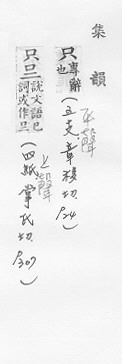 集韻
只專辭也（五支，章移切．P24）平聲
只𠮡說文語已詞或作𠮡（四紙掌氏切．P307）上聲